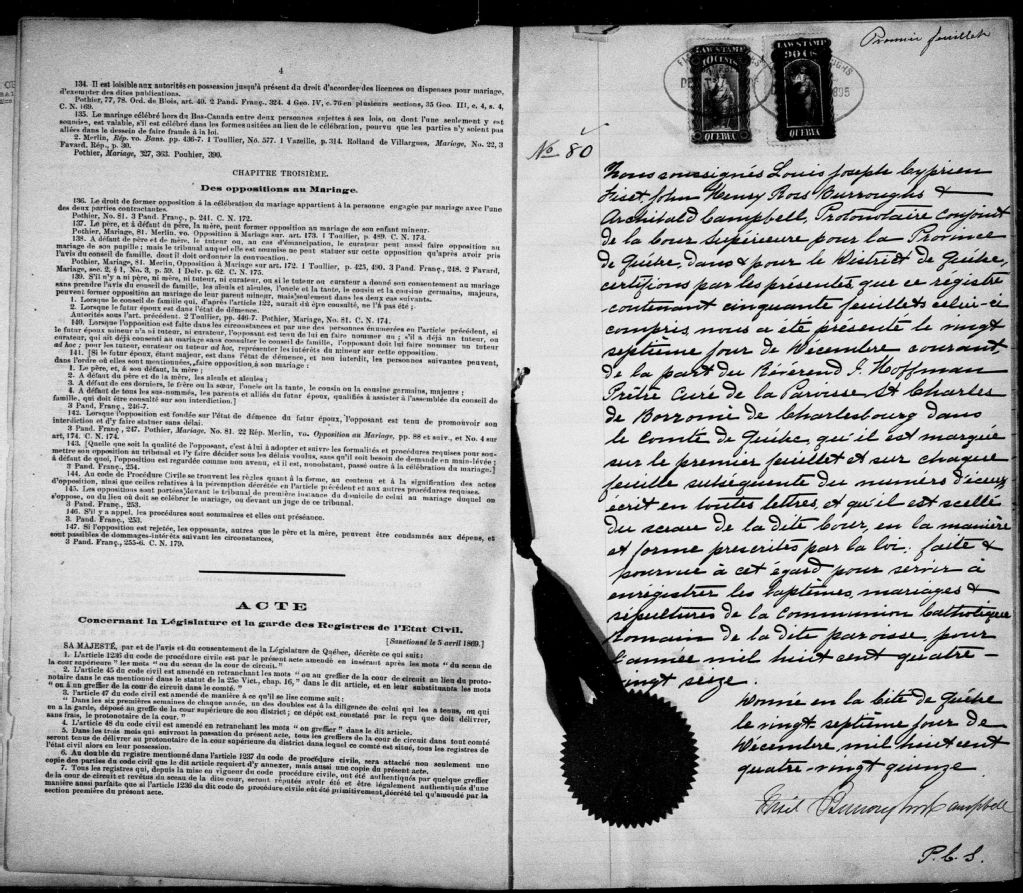 4
134. Il est loisible aux autorités en possession jusqu'à présent du droit d'accorder des licences ou dispenses pour mariage,
d'exempter des dites publications.
Pothier, 77, 78. Ord. de Blois, art. 40. 2 Pand. Franç., 324. 4 Geo. IV, c. 76 en plusieurs sections, 35 Geo. III, c. 4, s. 4,
C. N. 169.
135. Le mariage célébré hors du Bas-Canada entre deux personnes sujettes à ses lois, ou dont l'une seulement y est
soumise, est valable, s'il est célébré dans les formes usitées au lieu de la célébration, pourvu que les parties n'y soient pas
allées dans le dessein de faire fraude à la loi.
2. Merlin, Rép. vo. Bans. pp. 436-7. 1 Toullier, No. 577. 1 Vazeille, p. 314. Rolland de Villargues, Mariage, No. 22, 3
Favard, Rép., p. 30.
Pothier, Mariage, 327, 363. Pouhier, 390.
CHAPITRE TROISIÈME.
Des oppositions au Mariage.
136. Le droit de former opposition à la célébration du mariage appartient à la personne engagée par mariage avec l'une
des deux parties contractantes.
Pothier, No. 81. 3 Pand. Franç., p. 241. C. N. 172.
137. Le père, et à défaut du père, la mère, peut former opposition au mariage de son enfant mineur.
Pothier, Mariage, 81. Merlin, vo. Opposition à Mariage sur. art. 173. 1 Toullier, p. 489. C. N. 173.
138. A défaut de père et de mère, le tuteur ou, au cas d'émancipation, le curateur peut aussi faire opposition au
mariage de son pupille; mais le tribunal auquel elle est soumise ne peut statuer sur cette opposition qu'après avoir pris
l'avis du conseil de famille, dont il doit ordonner la convocation.
Pothier, Mariage, 81. Merlin, Opposition à Mariage sur art. 172. 1 Toullier, p. 425, 490. 3 Pand. Franç., 248. 2 Favard,
Mariage, sec. 2, § 1, No. 3, p. 59. 1 Delv. p. 62. C. N. 175.
139. S'il n'y a ni père, ni mère, ni tuteur, ni curateur, ou si le tuteur ou curateur a donné son consentement au mariage
sans prendre l'avis du conseil de famille, les aïeuls et aïeules, l'oncle et la tante, le cousin ou la cousine germains, majeurs,
peuvent former opposition au mariage de leur parent mineur, mais seulement dans les deux cas suivants.
1. Lorsque le conseil de famille qui, d'après l'article 122, aurait dû être consulté, ne l'a pas été;
2. Lorsque le futur époux est dans l'état de démence.
Autorités sous l'art. précédent. 2 Toullier, pp. 446-7. Pothier, Mariage, No. 81. C. N. 174.
140. Lorsque l'opposition est faite dans les circonstances et par une des personnes énumérées en l'article précédent, si
le futur époux mineur n'a ni tuteur, ni curateur, l'opposant est tenu de lui en faire nommer un; s'il a déjà un tuteur, ou
curateur, qui ait déjà consenti au mariage sans consulter le conseil de famille, l'opposant doit lui faire nommer un tuteur
ad hoc; pour les tuteur, curateur ou tuteur ad hoc, représenter les intérêts du mineur sur cette opposition.
141. [Si le futur époux, étant majeur, est dans l'état de démence, et non interdit, les personnes suivantes peuvent,
dans l'ordre où elles sont mentionnées, faire opposition à son mariage:
1. Le père, et, à son défaut, la mère;
2. A défaut du père et de la mère, les aïeuls et aïeules;
3. A défaut de ces derniers, le frère ou la sœur, l'oncle ou la tante, le cousin ou la cousine germains, majeurs;
4. A défaut de tous les sus-nommés, les parents et alliés du futur époux, qualifiés à assister à l'assemblée du conseil de
famille, qui doit être consulté sur son interdiction.]
3 Pand. Franç., 246-7.
142. Lorsque l'opposition est fondée sur l'état de démence du futur époux, l'opposant est tenu de promouvoir son
interdiction et d'y faire statuer sans délai.
3 Pand. Franç., 247. Pothier, Mariage. No. 81. 22 Rép. Merlin, vo. Opposition au Mariage, pp. 88 et suiv., et No. 4 sur
art. 174. C. N. 174.
143. [Quelle que soit la qualité de l'opposant, c'est à lui à adopter et suivre les formalités et procédures requises pour sou-
mettre son opposition au tribunal et l'y faire décider sous les délais voulus, sans qu'il soit besoin de demande en main-levée;
à défaut de quoi, l'opposition est regardée comme non avenu, et il est, nonobstant, passé outre à la célébration du mariage.]
3 Pand. Franç., 254.
144. Au code de Procédure Civile se trouvent les règles quant à la forme, au contenu et à la signification des actes
d'opposition, ainsi que celles relatives à la péremption décrétée en l'article précédent et aux autres procédures requises.
145. Les oppositions sont portées devant le tribunal de première instance du domicile de celui au mariage duquel on
s'oppose, ou du lieu où doit se célébrer le mariage, ou devant un juge de ce tribunal.
3 Pand. Franç., 253.
146. S'il y a appel, les procédures sont sommaires et elles ont préséance.
3. Pand. Franç., 253.
147. Si l'opposition est rejetée, les opposants, autres que le père et la mère, peuvent être condamnés aux dépens, et
sont passibles de dommages-intérêts suivant les circonstances,
3 Pand. Franç., 255-6. C. N. 179.
ACTE
Concernant la Législature et la garde des Registres de l'Etat Civil.
[Sanctionné le 5 avril 1869.]
SA MAJESTÉ, par et de l'avis et du consentement de la Législature de Québec, décrète ce qui suit:
1. L'article 1236 du code de procédure civile est par le présent acte amendé en insérant après les mots "du sceau de
la cour supérieure" les mots "ou du sceau de la cour de circuit."
2. L'article 45 du code civil est amendé en retranchant les mots "ou au greffier de la cour de circuit au lieu du proto-
notaire dans le cas mentionné dans le statut de la 25e Vict., chap. 16," dans le dit article, et en leur substituants les mots
"ou à un greffier de la cour de circuit dans le comté."
3. l'article 47 du code civil est amendé de manière à ce qu'il se lise comme suit:
"Dans les six premières semaines de chaque année, un des doubles est à la diligence de celui qui les a tenus, ou qui
en a la garde, déposé au greffe de la cour supérieure de son district; ce dépôt est constaté par le reçu que doit délivrer,
sans frais, le protonotaire de la cour."
4. L'article 48 du code civil est amendé en retranchant les mots "ou greffier" dans le dit article.
5. Dans les trois mois qui suivront la passation du présent acte, tous les greffiers de la cour de circuit dans tout comté
seront tenus de délivrer au protonotaire de la cour supérieure du district dans lequel ce comté est situé, tous les registres de
l'état civil alors en leur possession.
6. Au double du registre mentionné dans l'article 1237 du code de procédure civile, sera attaché non seulement une
copie des parties du code civil que le dit article requiert d'y annexer, mais aussi une copie du présent acte.
7. Tous les registres qui, depuis la mise en vigueur du code procédure civile, ont été authentiqués par quelque greffier
de la cour de circuit et revêtus du sceau de la dite cour, seront réputés avoir été et être légalement authentiqués d'une
manière aussi parfaite que si l'article 1236 du dit code de procédure civile eût été primitivement décrété tel qu'amendé par la
section première du présent acte.
Premier feuillet
LAW STAMP
10 CENTS
QUEBEC
LAW STAMP
20 CTS
QUEBEC
No 80
Nous soussignés Louis Joseph Cyprien
Fiset, John Henry Ross Burroughs &
Archibald Campbell, Protonotaire conjoint
de la Cour Supérieure pour la Province
de Québec, dans & pour le District de Québec,
certifions par les présentes que ce régistre
contenant cinquante feuillets celui-ci
compris nous a été présenté le vingt
septième jour de Décembre courant,
de la part du Révérend J. Hoffman
Prêtre Curé de la Paroisse St Charles
de Borromé de Charlesbourg dans
le Comté de Québec, qu'il est marqué
sur le premier feuillet et sur chaque
feuille subséquente du numéro d'iceux,
écrit en toutes lettres, et qu'il est scellé
du sceau de la dite Cour, en la manière
et forme prescrites par la loi: faite &
pourvue à cet égard pour servir à
enrégistrer les baptêmes, mariages &
sépultures de la communion Catholique
Romaine de la dite paroisse, pour
l'année mil huit cent quatre-
vingt seize.
Donné en la Cité de Québec
le vingt septième jour de
Décembre, mil huit cent
quatre-vingt quinze.
Fiset Burroughs & Campbell
P. C. S.